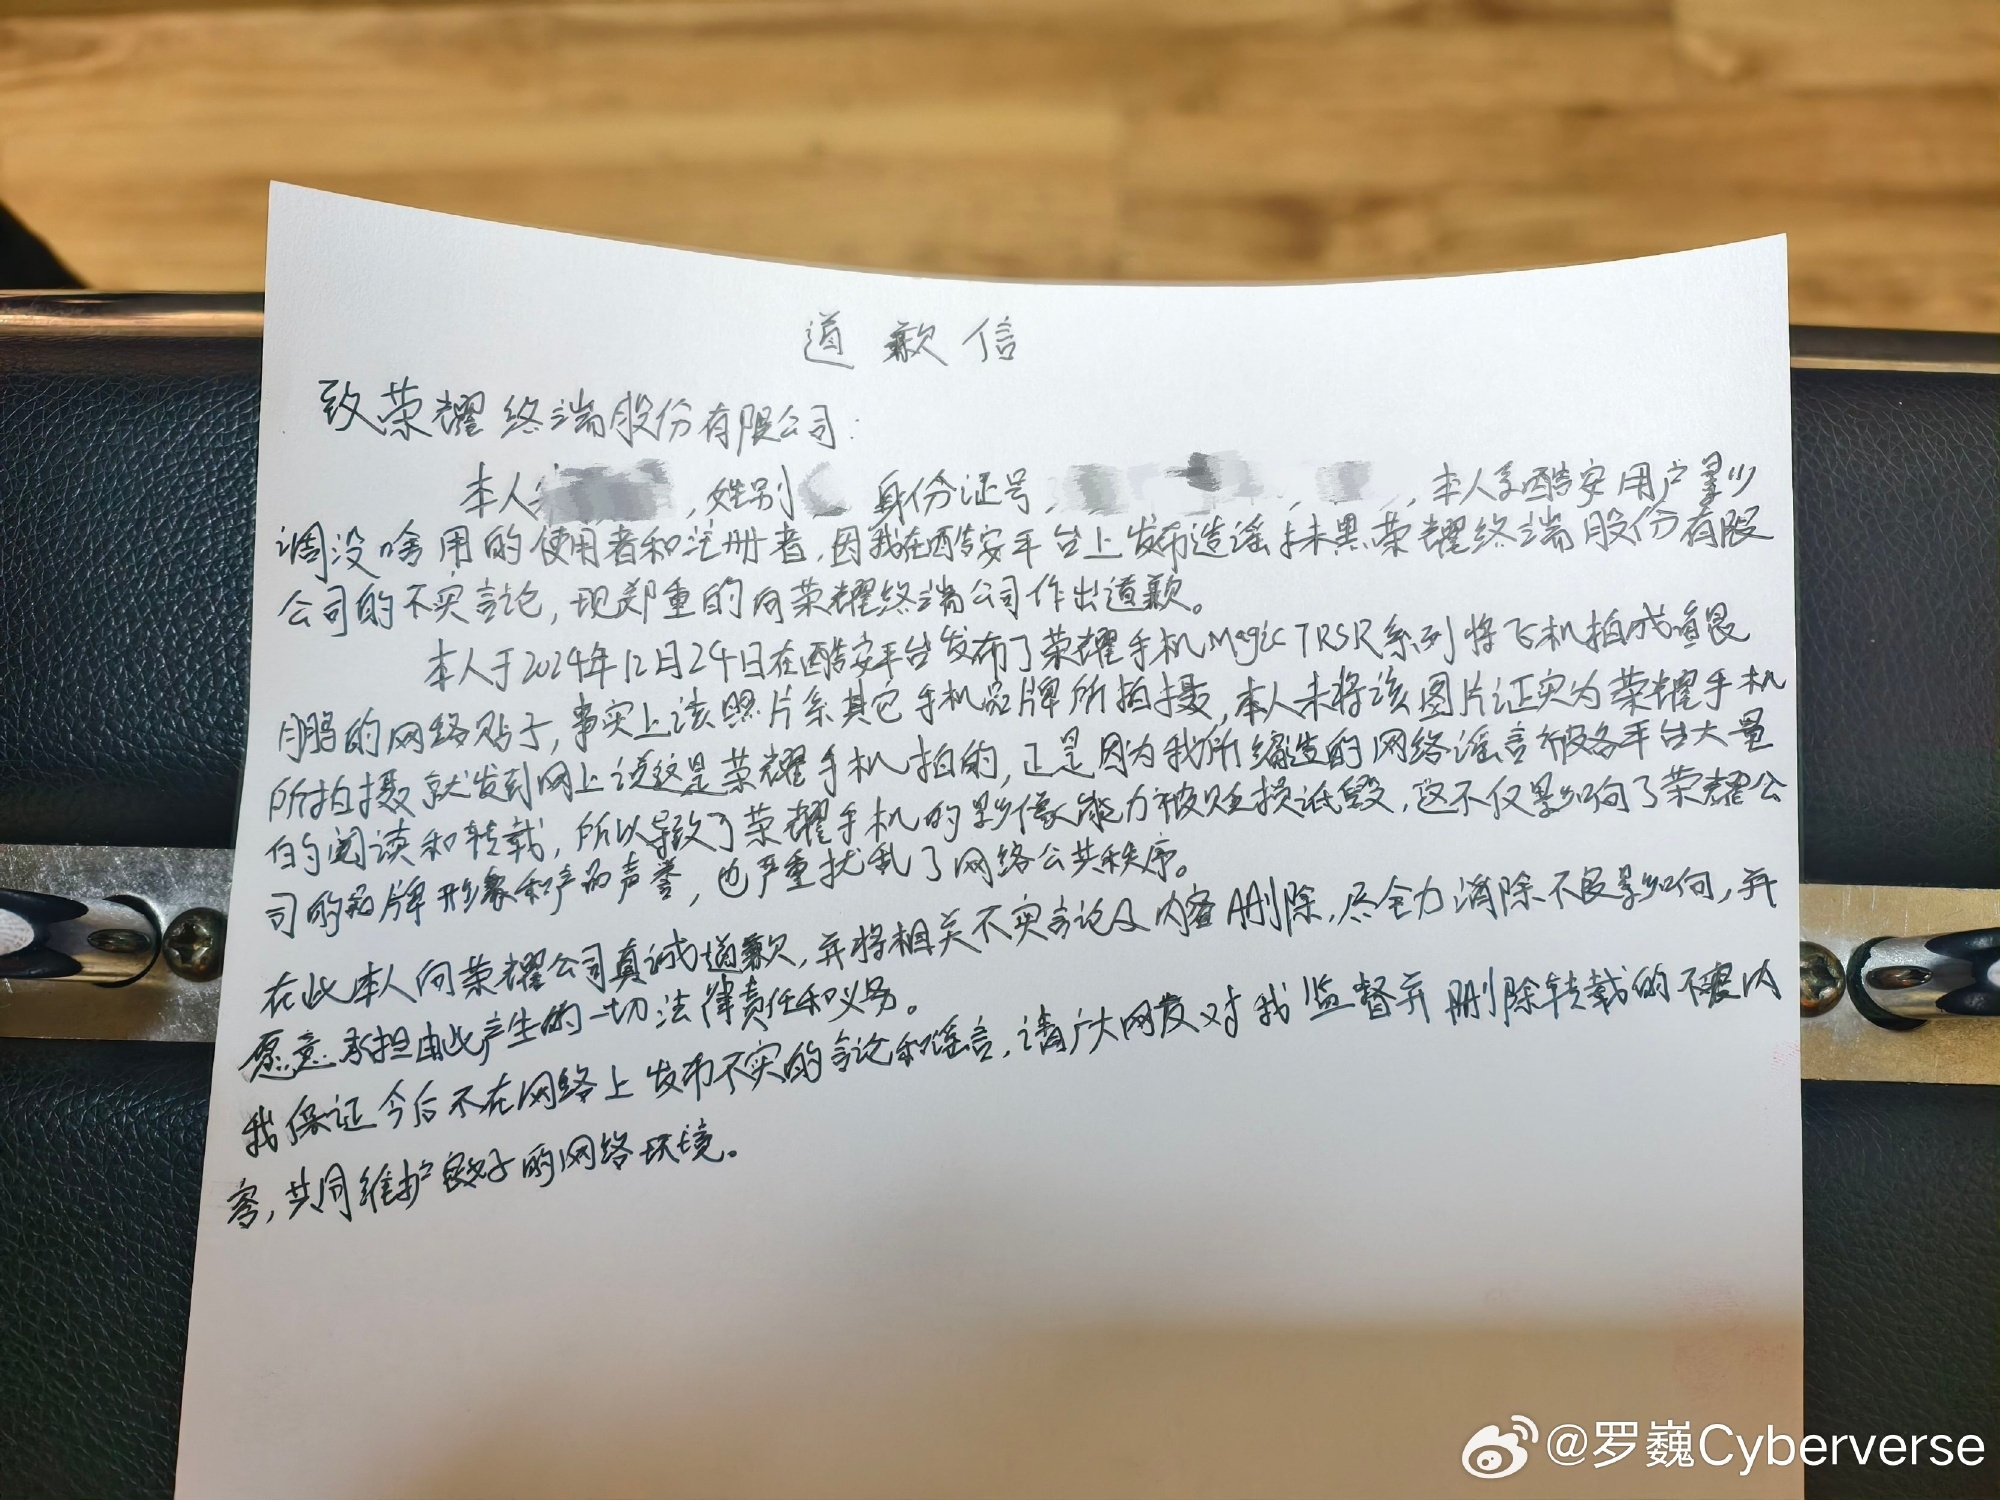 道歉信
致荣耀终端股份有限公司:
本人 ,姓别 身份证号 , , ,本人系酷安用户景川
调没啥用的使用者和注册者,因我在酷安平台上发布造谣抹黑荣耀终端股份有限
公司的不实言论,现郑重的向荣耀终端公司作出道歉。
本人于2024年12月24日在酷安平台发布了荣耀手机Magic7RSR系列将飞机拍成
鹏的网络贴子,事实上该照片系其它手机品牌所拍摄,本人未将该图片证实为荣耀手机
所拍摄就发到网上说这是荣耀手机拍的,正是因为我所编造的网络谣言被各平台大量
的阅读和转载,所以导致了荣耀手机的影像能力被贬损诋毁,这不仅影响了荣耀公
司的品牌形象和产品声誉,也严重扰乱了网络公共秩序。
在此本人向荣耀公司真诚道歉,并将相关不实言论及内容删除,尽全力消除不良影响,并
愿意承担由此产生的一切法律责任和义务。
我保证今后不在网络上发布不实的言论和谣言,请广大网友对我监督并删除转载的不实内
容,共同维护良好的网络环境。
@罗巍Cyberverse